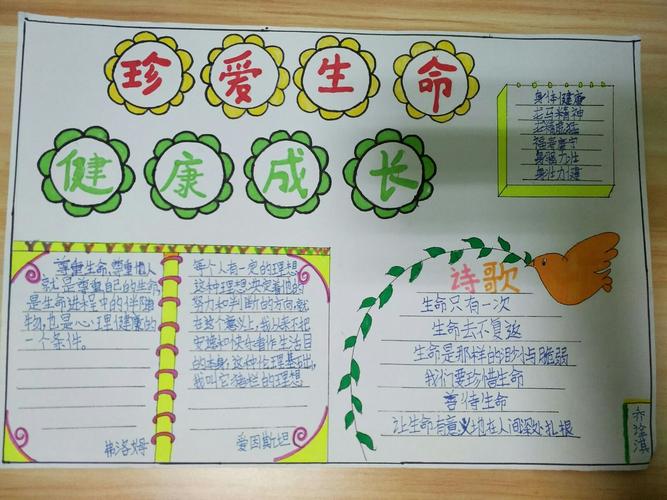 珍爱生命
健康成长
身体健康
龙马精神
龙精虎猛
福寿康宁
身强力壮
身壮力健
尊重生命、尊重他人
就是尊重自己的生命
是生命进程中的伴随
物,也是心理健康的
一个条件。
弗洛姆
每个人有一定的理想
这种理想决定着他的
努力和判断的方向,就
在这个意义上,我从来不把
安逸和快乐看作生活目
的本身,这种伦理基础,
我叫它猪栏的理想
爱因斯坦
诗歌
生命只有一次
生命去不复返
生命是那样的渺小与脆弱
我们要珍惜生命
善待生命
让生命有意义地在人间深处扎根